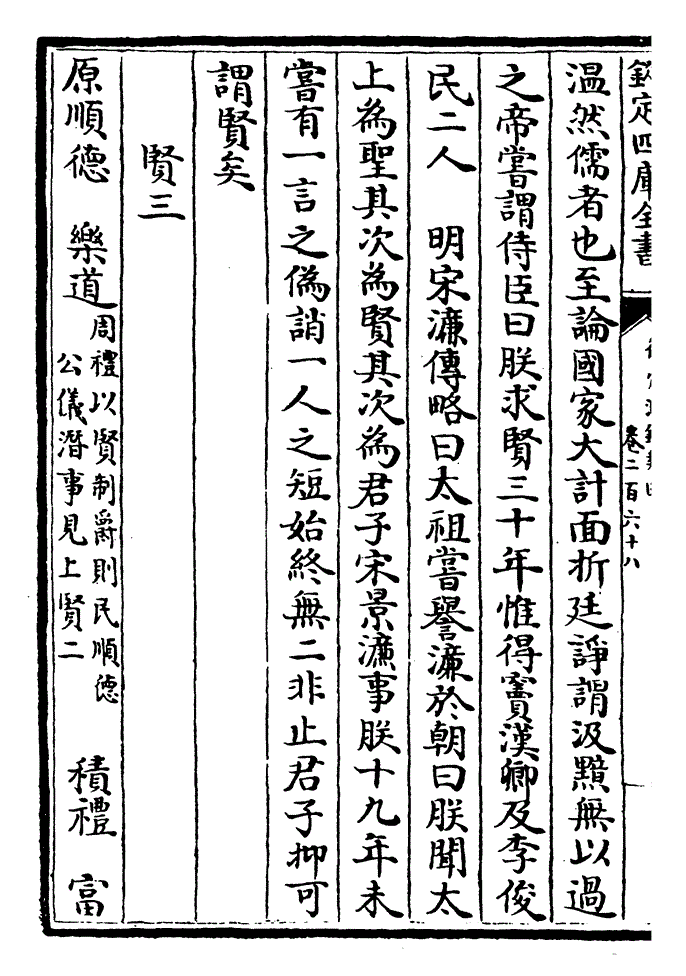 欽定四庫全書
卷二百六十八
温然儒者也至論國家大計面折廷諍謂汲黯無以過
之帝嘗謂侍臣曰朕求賢三十年惟得竇漢卿及李俊
民二人　明宋濓傳略曰太祖嘗譽濓於朝曰朕聞太
上為聖其次為賢其次為君子宋景濓事朕十九年未
嘗有一言之偽誚一人之短始終無二非止君子抑可
謂賢矣
賢三
原順德　樂道周禮以賢制爵則民順德公儀潛事見上賢二　積禮　富